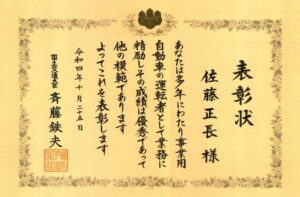 表彰状
佐藤正長様
あなたは多年にわたり事業用
自動車の運転者として業務に
精励しその成績は優秀であって
他の模範であります
よってこれを表彰します
令和四年十月二十五日
国土交通大臣 斉藤鉄夫